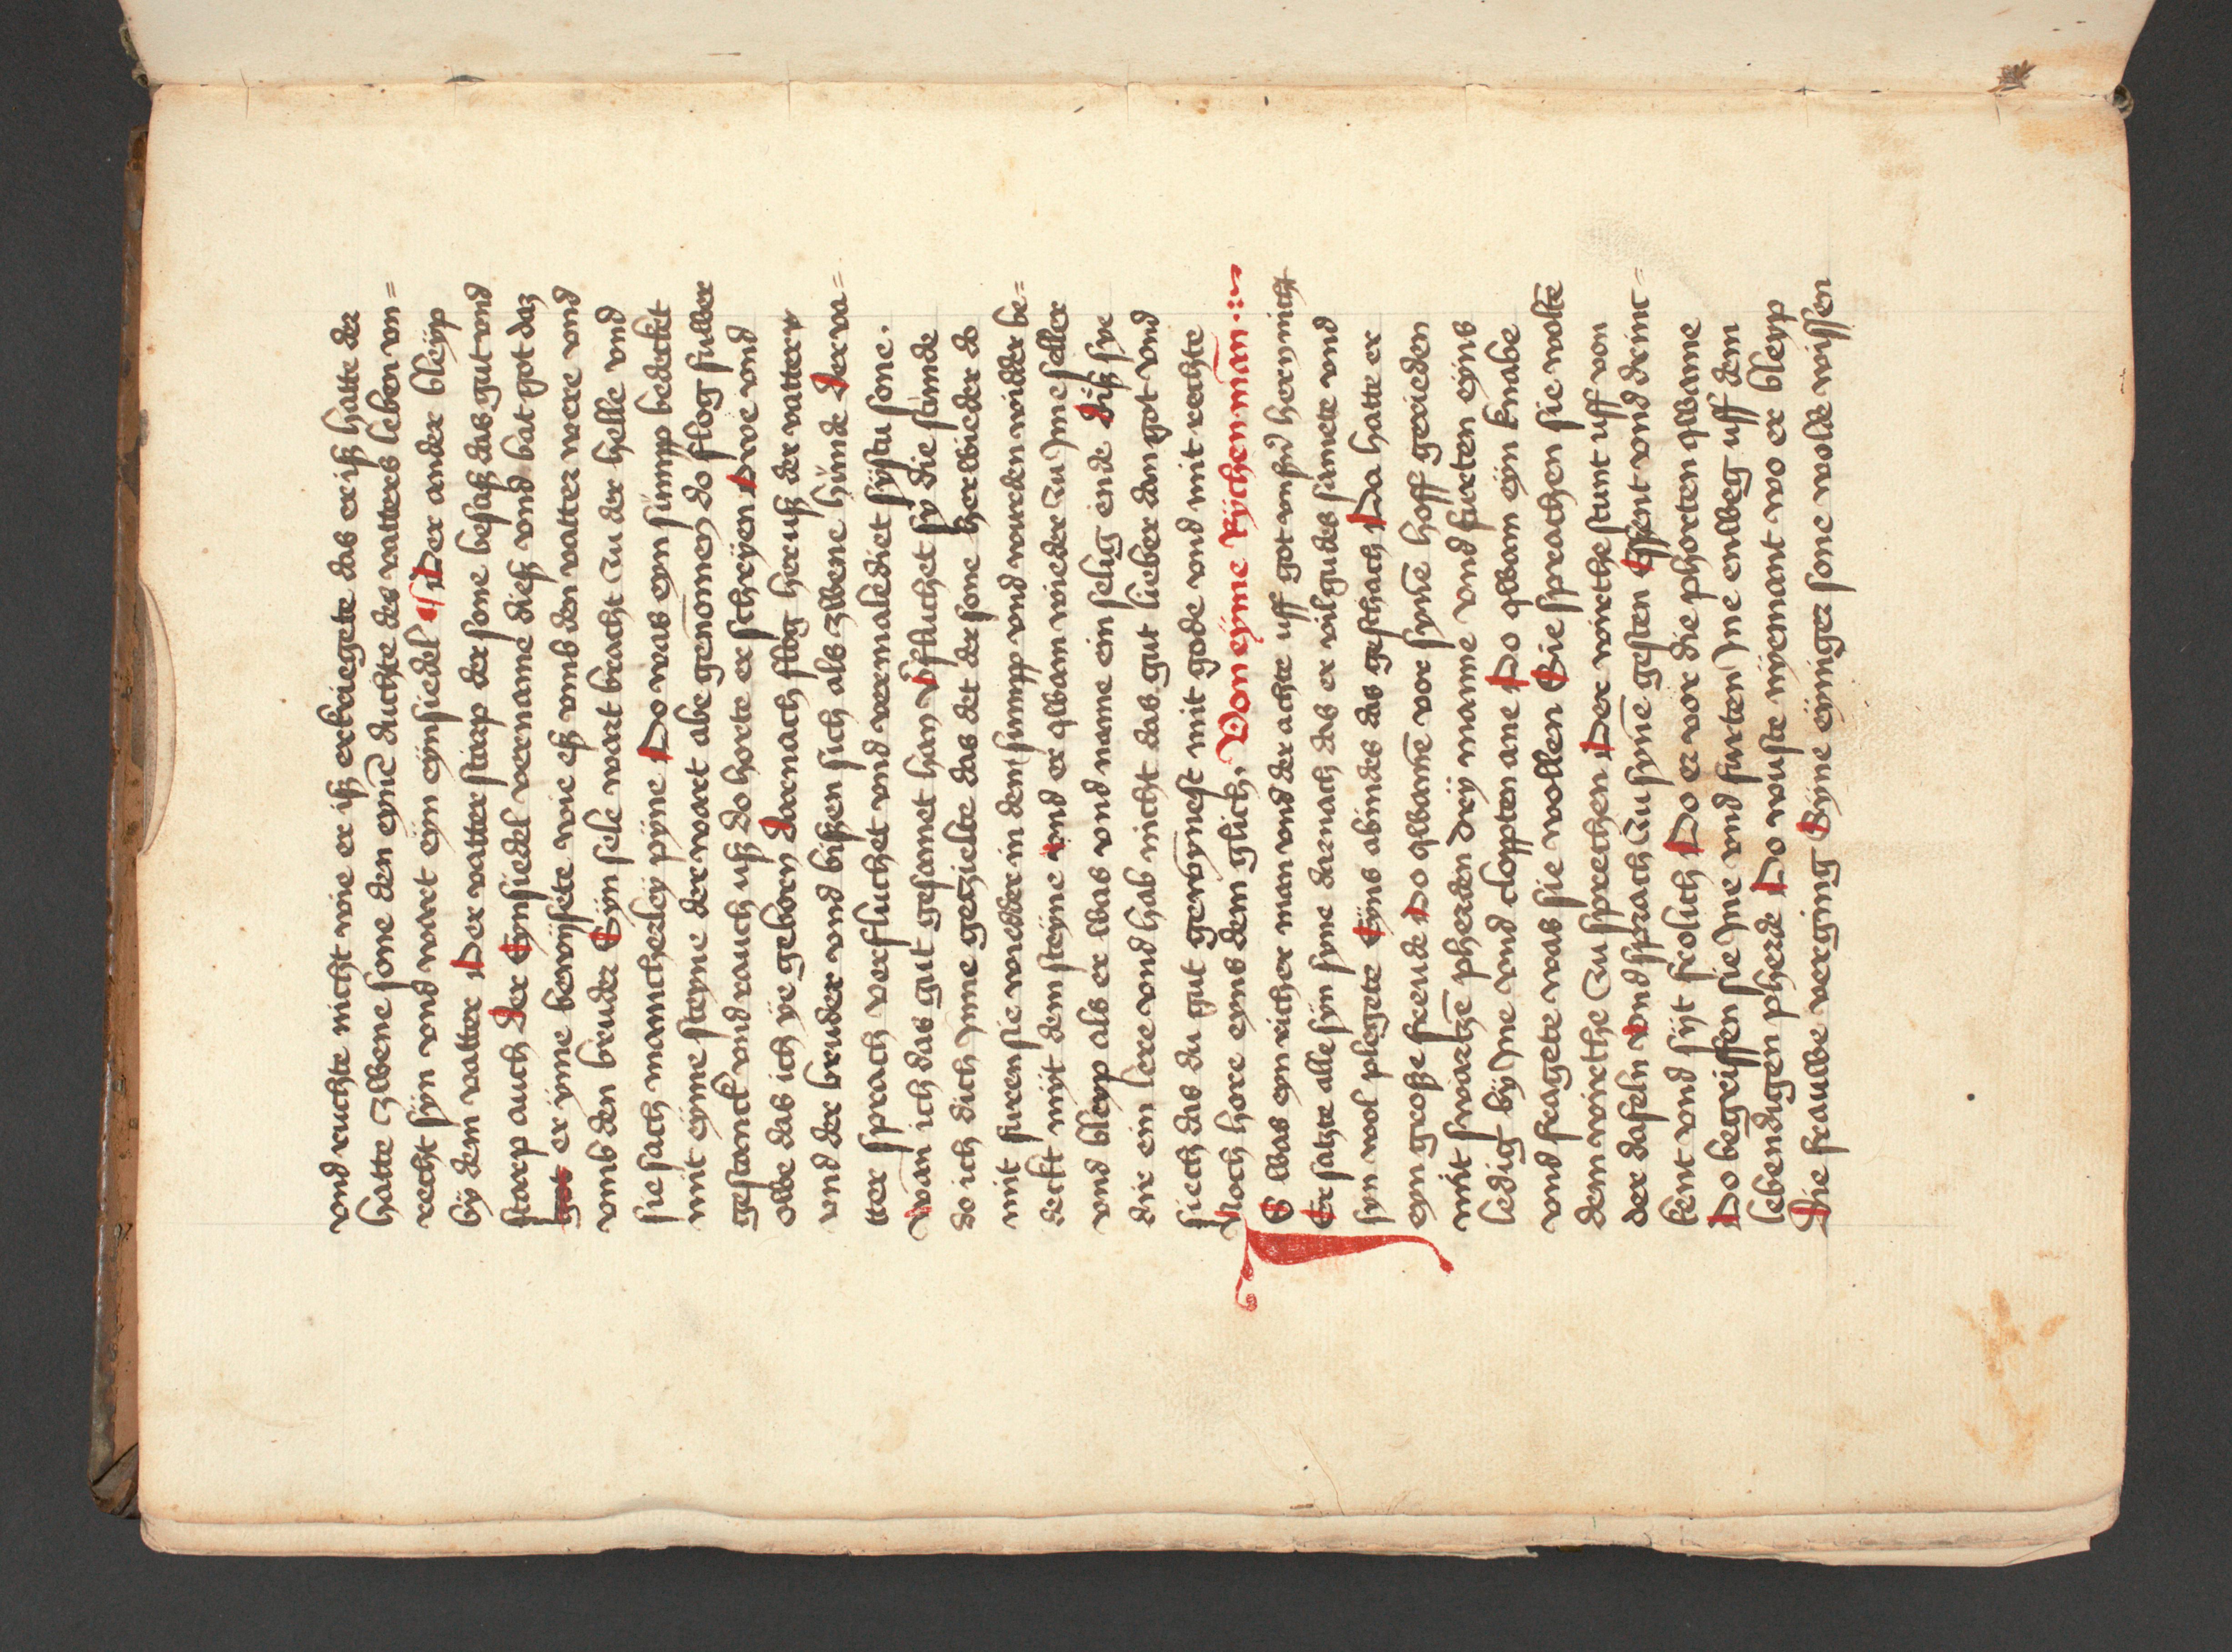 vnd ruchte nicht wie er iß erkriegete das er iß hatte der
hatte zwene sone den eyne̅ duchte des vatters leben vn=
recht sijn vnd wart eÿn eÿnsiedel ¶ Der ander bleÿp
bÿ dem vatter Der vatter starp der sone besaß das gut vnd
starp auch Der Eynsiedel vername dieß vnd bat got daz
er ÿme bewÿsete wie eß vmb den vatter were vnd
vmb den bruder Sÿn sele wart bracht zu der helle vnd
sie sach mancherleÿ pÿne Do was eyn sümpp bedeckt
mit eÿme steyne der wart abe genomen do flog fuller
gestanck vnd rauch uß do horte er schrÿen Owe vnd
owe das ich ÿe geborn Darnach flog her uß der vatter
vnd der bruder vnd bißen sich als zwene hünde Der va=
tter sprach verfluchet vnd vermaledict sÿstu sone.
Wan ich das gut gesamet han Vfluchet sy die stunde
do ich dich ÿmme getzielte das det der sone herwieder do
mit furen sie wiedder in den sumpp vnd wurden widder be=
deckt mÿt dem steÿne Vnd er qwam wieder zu Jme selber
vnd bleyp als er was vnd name ein selig ende Diß sye
dir ein lere vnd hab nicht das gut lieber dan got vnd
siech das du gut gewÿnest mit gode vnd mit rechte
Noch hore eyns dem glich, Von eÿme Rÿchen man .:~
JS was eyn richer man vnd der achte uff got vnsnd hern nicht
Er satzte alle sÿn syne darnach das er vil gudes samete vnd
syn wol plegete Eÿns abindes das geschach Da hatte er
eyn große freude Do qwame̅ vor syne̅ hoff gerieden
mit swartze̅ pherden drÿ manne vnd furten eÿns
ledig bÿ Jne vnd clopten ane Do qwam eÿn knabe
vnd fragete was sie wollen Sie sprachen sie wolte̅
dem wirthe zu sprechen Der wirthe stunt uff von
der dafeln Vnd sprach zu syne̅ gesten Essent vnd drinc=
kent vnd sÿt frolich Do er vor die phorten qwame
Do begriffen sie Jne vnd furten Jne enweg uff dem
lebendigen pherde Do wuste nÿemant wo er bleyp
Die frauwe verging Sÿne eÿniger sone wolde wissen